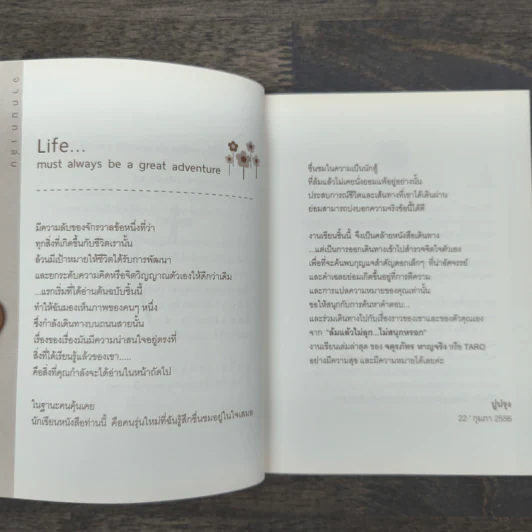 Life...
must always be a great adventure
มีความลับของจักรวาลข้อหนึ่งที่ว่า
ทุกสิ่งที่เกิดขึ้นกับชีวิตเรานั้น
ล้วนมีเป้าหมายให้ชีวิตได้รับการพัฒนา
และยกระดับความคิดหรือจิตวิญญาณตัวเองให้ดีกว่าเดิม
...แรกเริ่มที่ได้อ่านต้นฉบับชิ้นนี้
ทำให้ฉันมองเห็นภาพของคนๆ หนึ่ง
ซึ่งกำลังเดินทางบนถนนสายนั้น
เรื่องของเรื่องมันมีความน่าสนใจอยู่ตรงที่
สิ่งที่ได้เรียนรู้แล้วของเขา.....
คือสิ่งที่คุณกำลังจะได้อ่านในหน้าถัดไป
ในฐานะคนคุ้นเคย
นักเขียนหนังสือท่านนี้ คือคนรุ่นใหม่ที่ฉันรู้สึกชื่นชมอยู่ในใจเสมอ
ชื่นชมในความเป็นนักสู้
ที่ล้มแล้วไม่เคยนั่งยอมแพ้อยู่อย่างนั้น
ประสบการณ์ชีวิตและเส้นทางที่เขาได้เดินผ่าน
ย่อมสามารถบ่งบอกความจริงข้อนี้ได้ดี
งานเขียนชิ้นนี้ จึงเป็นคล้ายหนังสือเดินทาง
...แต่เป็นการออกเดินทางเข้าไปสำรวจจิตใจตัวเอง
เพื่อที่จะค้นพบกุญแจสำคัญดอกเล็กๆ ที่น่าอัศจรรย์
และคำเฉลยย่อมเกิดขึ้นอยู่ที่การตีความ
และการแปลความหมายของคุณเท่านั้น
ขอให้สนุกกับการค้นหาคำตอบ...
และร่วมเดินทางไปกับเรื่องราวของเขาและของตัวคุณเอง
จาก "ล้มแล้วไม่ลุก...ไม่สนุกหรอก"
งานเขียนเล่มล่าสุด ของ จตุรภัทร หาญจริง หรือ TARO
อย่างมีความสุข และมีความหมายได้เลยค่ะ
ปูปรุง
22 ' กุมภา 2556